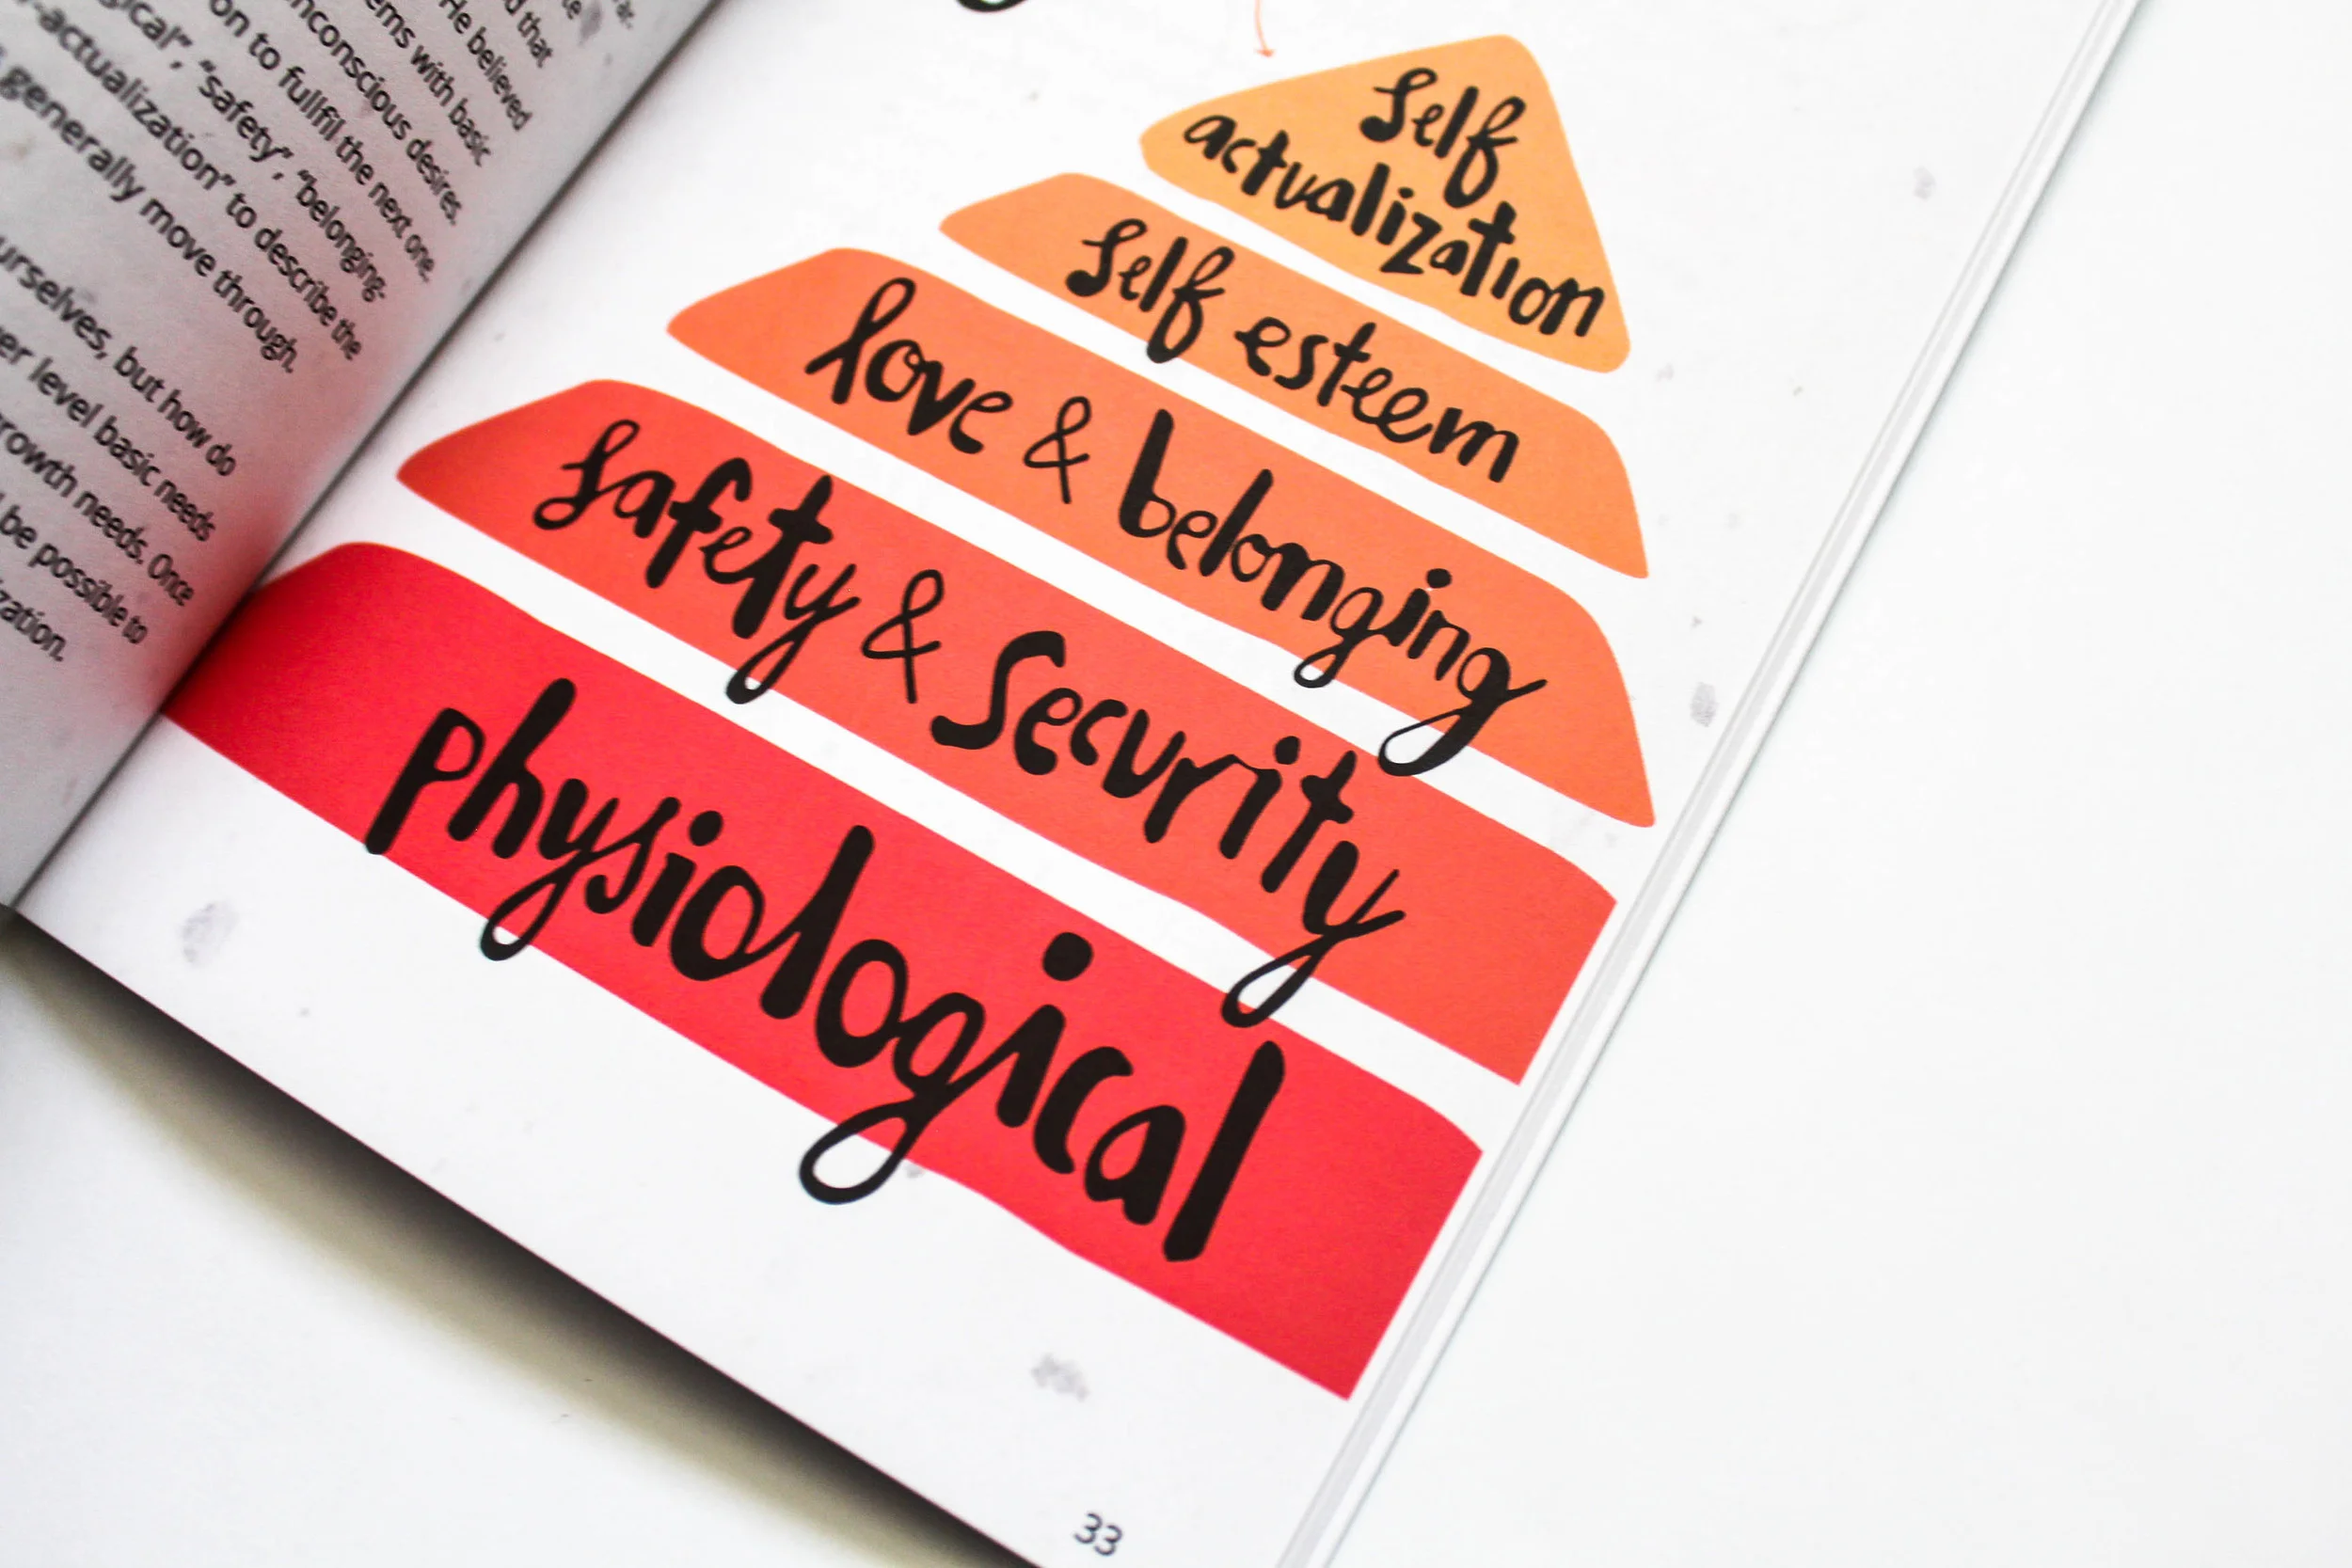 d that
He believed
ems with basic
nconscious desires.
on to fullfil the next one.
gical", "safety", "belonging-
-actualization" to describe the
generally move through.
urselves, but how do
er level basic needs
rowth needs. Once
be possible to
zation.
Self
actualization
Self esteem
love & belonging
Safety & Security
physiological
33